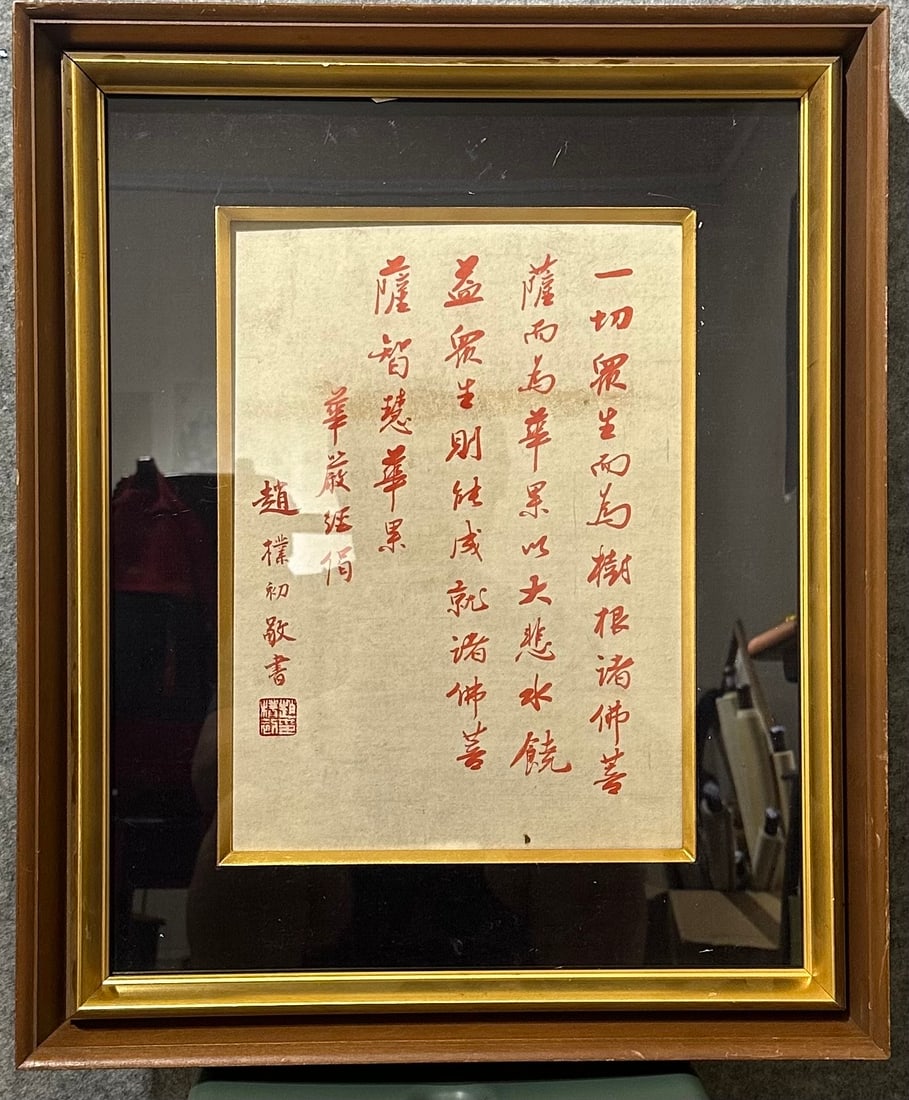 一切眾生而為樹根諸佛菩
薩而為華果以大悲水饒
益眾生則能成就諸佛菩
薩智慧華果
華嚴經偈
趙樸初敬書
趙印樸初